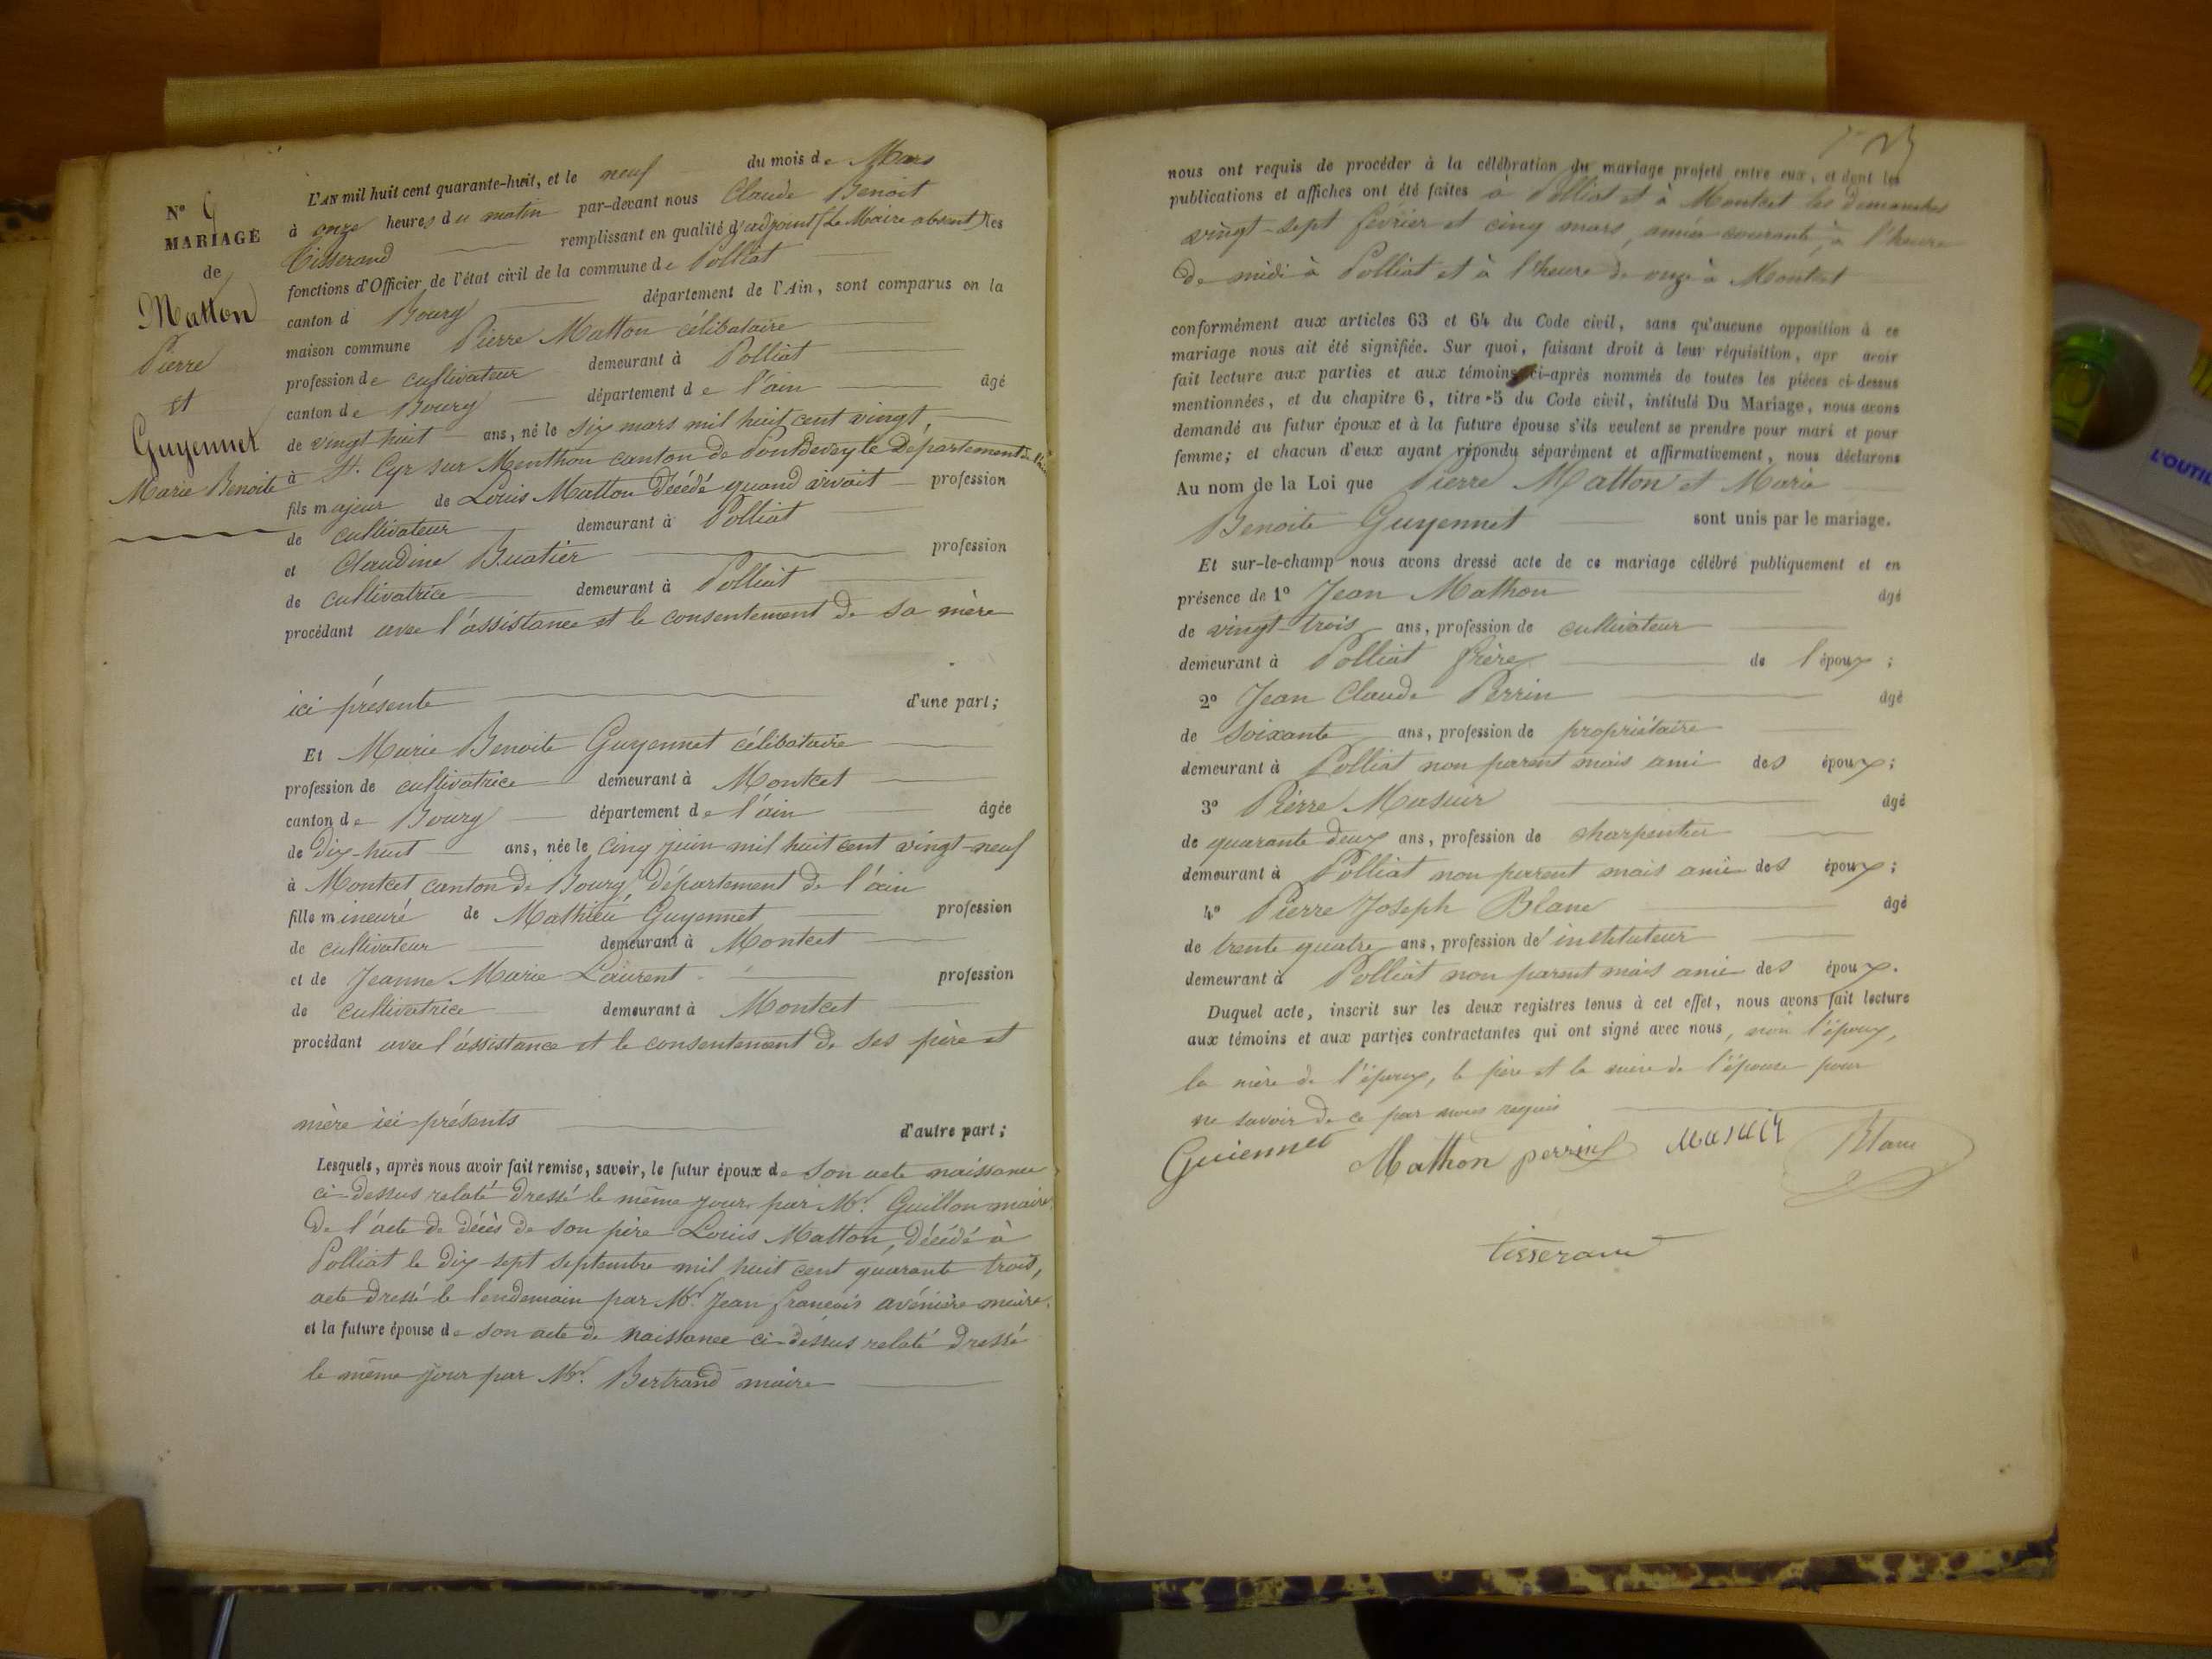 N° 9
MARIAGE
de
Matton
Pierre
et
Guyennet
Marie Benoite
L'AN mil huit cent quarante-huit, et le neuf du mois de Mars
à onze heures du matin par-devant nous Claude Benoit
Tisserand remplissant en qualité d'adjoint (Le Maire absent) les
fonctions d'Officier de l'état civil de la commune de Polliat
canton d Bourg département de l'Ain, sont comparus en la
maison commune Pierre Matton célibataire
profession de cultivateur demeurant à Polliat
canton de Bourg département de l'ain âgé
de vingt huit ans, né le six mars mil huit cent vingt
à St. Cyr sur Menthon canton de Pontdeveyle Département de l'ain
fils majeur de Louis Matton décédé quand vivait profession
de cultivateur demeurant à Polliat
et Claudine Buatier profession
de cultivatrice demeurant à Polliat
procédant avec l'assistance et le consentement de sa mère
ici présente d'une part;
Et Marie Benoite Guyennet célibataire
profession de cultivatrice demeurant à Montcet
canton de Bourg département de l'ain âgée
de dix-huit ans, née le cinq juin mil huit cent vingt-neuf
à Montcet canton de Bourg, Département de l'ain
fille mineure de Mathieu Guyennet profession
de cultivateur demeurant à Montcet
et de Jeanne Marie Laurent profession
de cultivatrice demeurant à Montcet
procédant avec l'assistance et le consentement de ses père et
mère ici présents d'autre part;
Lesquels, après nous avoir fait remise, savoir, le futur époux de son acte naissance
ci-dessus relaté dressé le même jour par Mr. Guillon maire
de l'acte de décès de son père Louis Matton, décédé à
Polliat le dix sept septembre mil huit cent quarante trois,
acte dressé le lendemain par Mr. Jean françois avénière maire.
et la future épouse de son acte de naissance ci-dessus relaté dressé
le même jour par Mr. Bertrand maire
nous ont requis de procéder à la célébration du mariage projeté entre eux, et dont les
publications et affiches ont été faites à Polliat et à Montcet les dimanches
vingt-sept février et cinq mars, année courante, à l'heure
de midi à Polliat et à l'heure de onze à Montcet
conformément aux articles 63 et 64 du Code civil, sans qu'aucune opposition à ce
mariage nous ait été signifiée. Sur quoi, faisant droit à leur réquisition, apr avoir
fait lecture aux parties et aux témoins ci-après nommés de toutes les pièces ci-dessus
mentionnées, et du chapitre 6, titre 5 du Code civil, intitulé Du Mariage, nous avons
demandé au futur époux et à la future épouse s'ils veulent se prendre pour mari et pour
femme; et chacun d'eux ayant répondu séparément et affirmativement, nous déclarons
Au nom de la Loi que Pierre Matton et Marie
Benoite Guyennet sont unis par le mariage.
Et sur-le-champ nous avons dressé acte de ce mariage célébré publiquement et en
présence de 1° Jean Mathon âgé
de vingt-trois ans, profession de cultivateur
demeurant à Polliat frère de l'époux;
2° Jean Claude Perrin âgé
de soixante ans, profession de propriétaire
demeurant à Polliat non parent mais ami des époux;
3° Pierre Masuir âgé
de quarante deux ans, profession de charpentier
demeurant à Polliat non parent mais ami des époux;
4° Pierre Joseph Blanc âgé
de trente quatre ans, profession de instituteur
demeurant à Polliat non parent mais ami des époux.
Duquel acte, inscrit sur les deux registres tenus à cet effet, nous avons fait lecture
aux témoins et aux parties contractantes qui ont signé avec nous, non l'époux,
la mère de l'époux, le père et la mère de l'épouse pour
ne savoir de ce par nous requis
Guiennet Mathon perrin masuir Blanc
tisserand
L'OUTIL